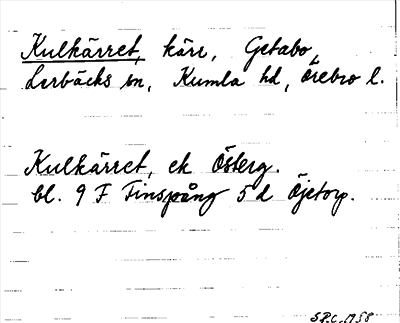 Kulkärret, kärr, Getabo,
Lerbäcks sn, Kumla hd, Örebro l.
Kulkärret, ek Österg.
bl. 9 F Finspång 5 d Öjetorp.
S.P.C. 1958